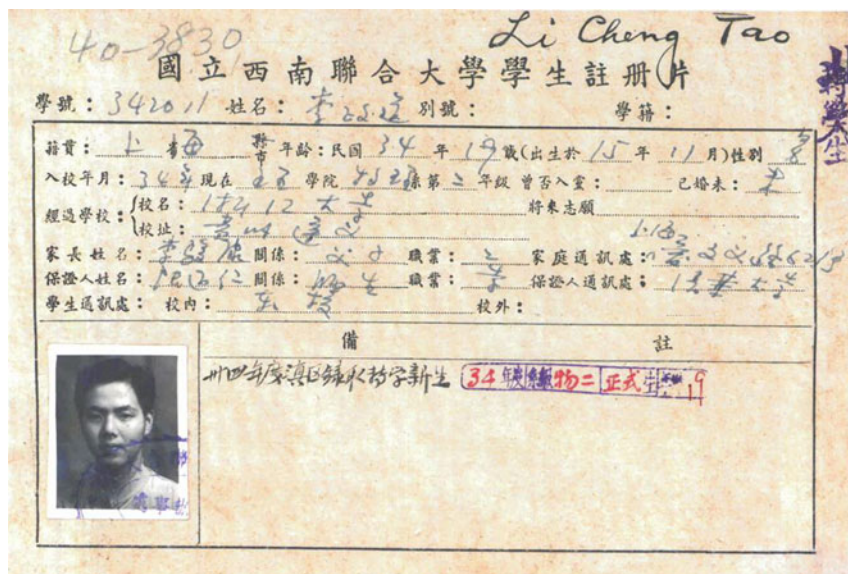 40-3830
Li Cheng Tao
國立西南聯合大學學生註册片
轉學生
學號：342011 姓名：李政道 別號： 學籍：
籍貫：上海 省 縣市 年齡：民国34年19歲(出生於15年11月)性別 男
入校年月：34年 現在 理 學院 物理 系第二年級 曾否入黨： 已婚未：未
經過學校：校名：浙江大學 將来志願
校址：貴州遵义
家長姓名：李駿康 關係：父子 職業： 家庭通訊處：上海
保證人姓名： 關係：師生 職業：學 保證人通訊處：大學
學生通訊處： 校内：本校 校外：
備註
卅四年度滇区錄取物学新生 34年度 物二 正式生 19